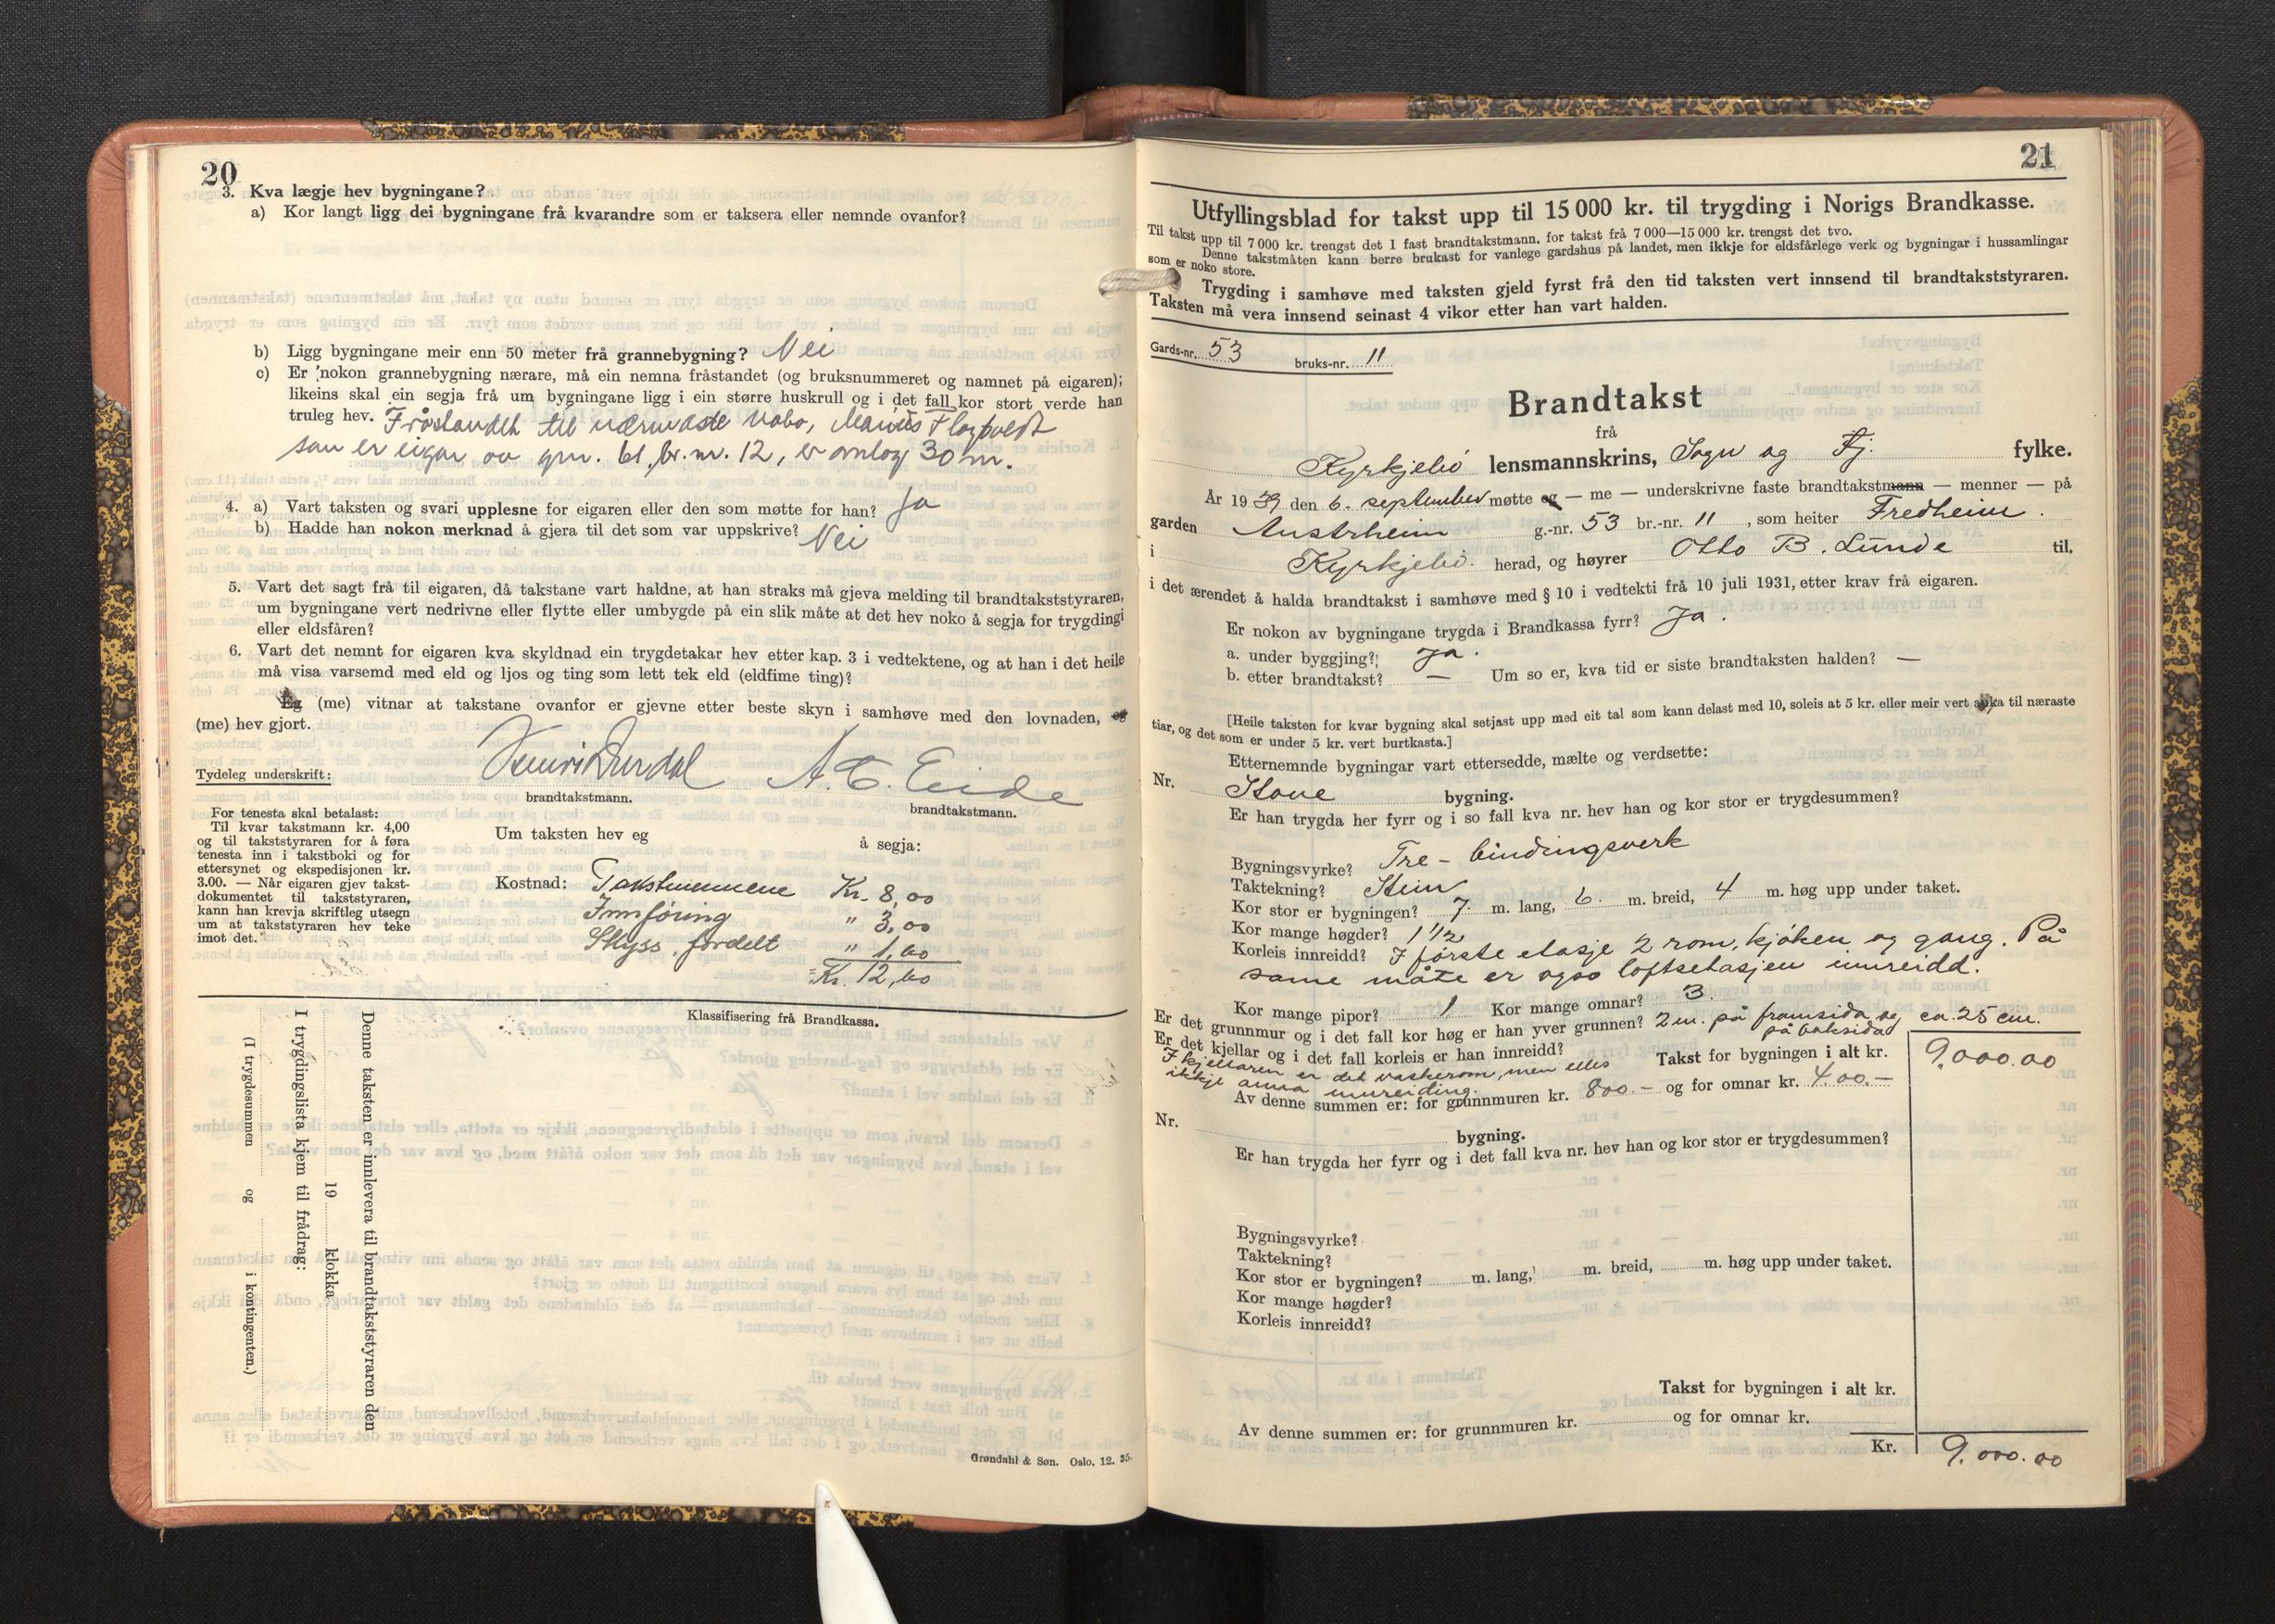 20
3. Kva lægje hev bygningane?
a) Kor langt ligg dei bygningane frå kvarandre som er taksera eller nemnde ovanfor?
b) Ligg bygningane meir enn 50 meter frå grannebygning? Nei
c) Er nokon grannebygning nærare, må ein nemna fråstandet (og bruksnummeret og namnet på eigaren);
likeins skal ein segja frå um bygningane ligg i ein større huskrull og i det fall kor stort verde han
truleg hev. Fråstandet til nærmaste nabo, Marius
som er eigar av gnr. 61, br. nr. 12, er omlag 30 m.
4. a) Vart taksten og svari upplesne for eigaren eller den som møtte for han? Ja
b) Hadde han nokon merknad å gjera til det som var uppskrive? Nei
5. Vart det sagt frå til eigaren, då takstane vart haldne, at han straks må gjeva melding til brandtakststyraren,
um bygningane vert nedrivne eller flytte eller umbygde på ein slik måte at det hev noko å segja for trygdingi
eller eldsfåren?
6. Vart det nemnt for eigaren kva skyldnad ein trygdetakar hev etter kap. 3 i vedtektene, og at han i det heile
må visa varsemd med eld og ljos og ting som lett tek eld (eldfime ting)?
Eg (me) vitnar at takstane ovanfor er gjevne etter beste skyn i samhøve med den lovnaden, eg
(me) hev gjort.
Tydeleg underskrift: A. E. Eide
brandtakstmann. brandtakstmann.
For tenesta skal betalast:
Til kvar takstmann kr. 4,00
og til takststyraren for å føra
tenesta inn i takstboki og for
ettersynet og ekspedisjonen kr.
3.00. — Når eigaren gjev takst-
dokumentet til takststyraren,
kann han krevja skriftleg utsegn
um at takststyraren hev teke
imot det.
Um taksten hev eg å segja:
Kostnad: Takstmennene Kr. 8,00
Innføring " 3,00
Skyss, fordelt " 1,60
Kr. 12,60
Klassifisering frå Brandkassa.
Denne taksten er innlevera til brandtakststyraren den
19 klokka
I trygdingslista kjem til frådrag:
(I trygdesummen og i kontingenten.)
Grøndahl & Søn. Oslo. 12. 35.
21
Utfyllingsblad for takst upp til 15 000 kr. til trygding i Norigs Brandkasse.
Til takst upp til 7 000 kr. trengst det 1 fast brandtakstmann, for takst frå 7 000—15 000 kr. trengst det tvo.
Denne takstmåten kann berre brukast for vanlege gardshus på landet, men ikkje for eldsfårlege verk og bygningar i hussamlingar
som er noko store.
Trygding i samhøve med taksten gjeld fyrst frå den tid taksten vert innsend til brandtakststyraren.
Taksten må vera innsend seinast 4 vikor etter han vart halden.
Gards-nr. 53 bruks-nr. 11
Brandtakst
frå
Kyrkjebø lensmannskrins, Sogn og Fj. fylke.
År 1939 den 6. september møtte eg — me — underskrivne faste brandtakstmann — menner — på
garden Austrheim g.-nr. 53 br.-nr. 11, som heiter Fredheim.
i Kyrkjebø. herad, og høyrer Otto B. Lunde til,
i det ærendet å halda brandtakst i samhøve med § 10 i vedtekti frå 10 juli 1931, etter krav frå eigaren.
Er nokon av bygningane trygda i Brandkassa fyrr? Ja.
a. under byggjing? Ja.
b. etter brandtakst? — Um so er, kva tid er siste brandtaksten halden? —
[Heile taksten for kvar bygning skal setjast upp med eit tal som kann delast med 10, soleis at 5 kr. eller meir vert auka til næraste
tiar, og det som er under 5 kr. vert burtkasta.]
Etternemnde bygningar vart ettersedde, mælte og verdsette:
Nr. Stove bygning.
Er han trygda her fyrr og i so fall kva nr. hev han og kor stor er trygdesummen?
Bygningsvyrke? Tre - bindingsverk
Taktekning? Stein
Kor stor er bygningen? 7 m. lang, 6. m. breid, 4 m. høg upp under taket.
Kor mange høgder? 1 1/2
Korleis innreidd? I første etasje 2 rom, kjøken og gang. På
same måte er ogso loftsetasjen innreidd.
Kor mange pipor? 1 Kor mange omnar? 3.
Er det grunnmur og i det fall kor høg er han yver grunnen? 2 m. på framsida og ca. 25 cm.
på baksida
Er det kjellar og i det fall korleis er han innreidd?
I kjellaren er det vaskerom, men elles
ikkje anna innreiding.
Takst for bygningen i alt kr. 9.000.00
Av denne summen er: for grunnmuren kr. 800.— og for omnar kr. 400.—
Nr. bygning.
Er han trygda her fyrr og i det fall kva nr. hev han og kor stor er trygdesummen?
Bygningsvyrke?
Taktekning?
Kor stor er bygningen? m. lang, m. breid, m. høg upp under taket.
Kor mange høgder?
Korleis innreidd?
Takst for bygningen i alt kr.
Av denne summen er: for grunnmuren kr. og for omnar kr.
Kr. 9.000.00